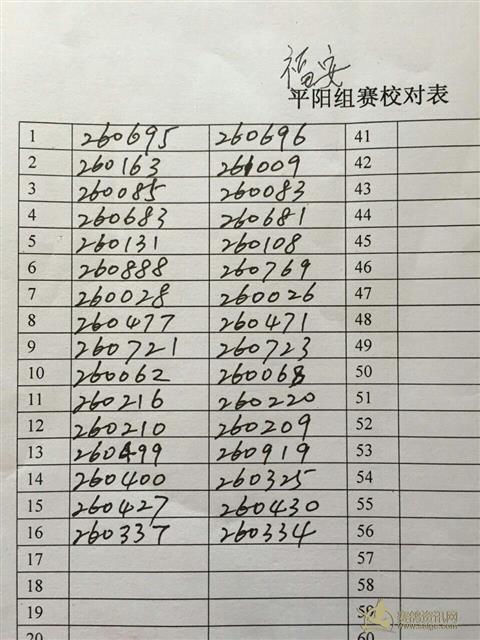 福安
平阳组赛校对表
1 260695 260696 41
2 260163 261009 42
3 260085 260083 43
4 260683 260681 44
5 260131 260108 45
6 260888 260769 46
7 260028 260026 47
8 260477 260471 48
9 260721 260723 49
10 260062 260068 50
11 260216 260220 51
12 260210 260209 52
13 260499 260919 53
14 260400 260325 54
15 260427 260430 55
16 260337 260334 56
17 57
18 58
19 59
20 60
赛鸽资讯网